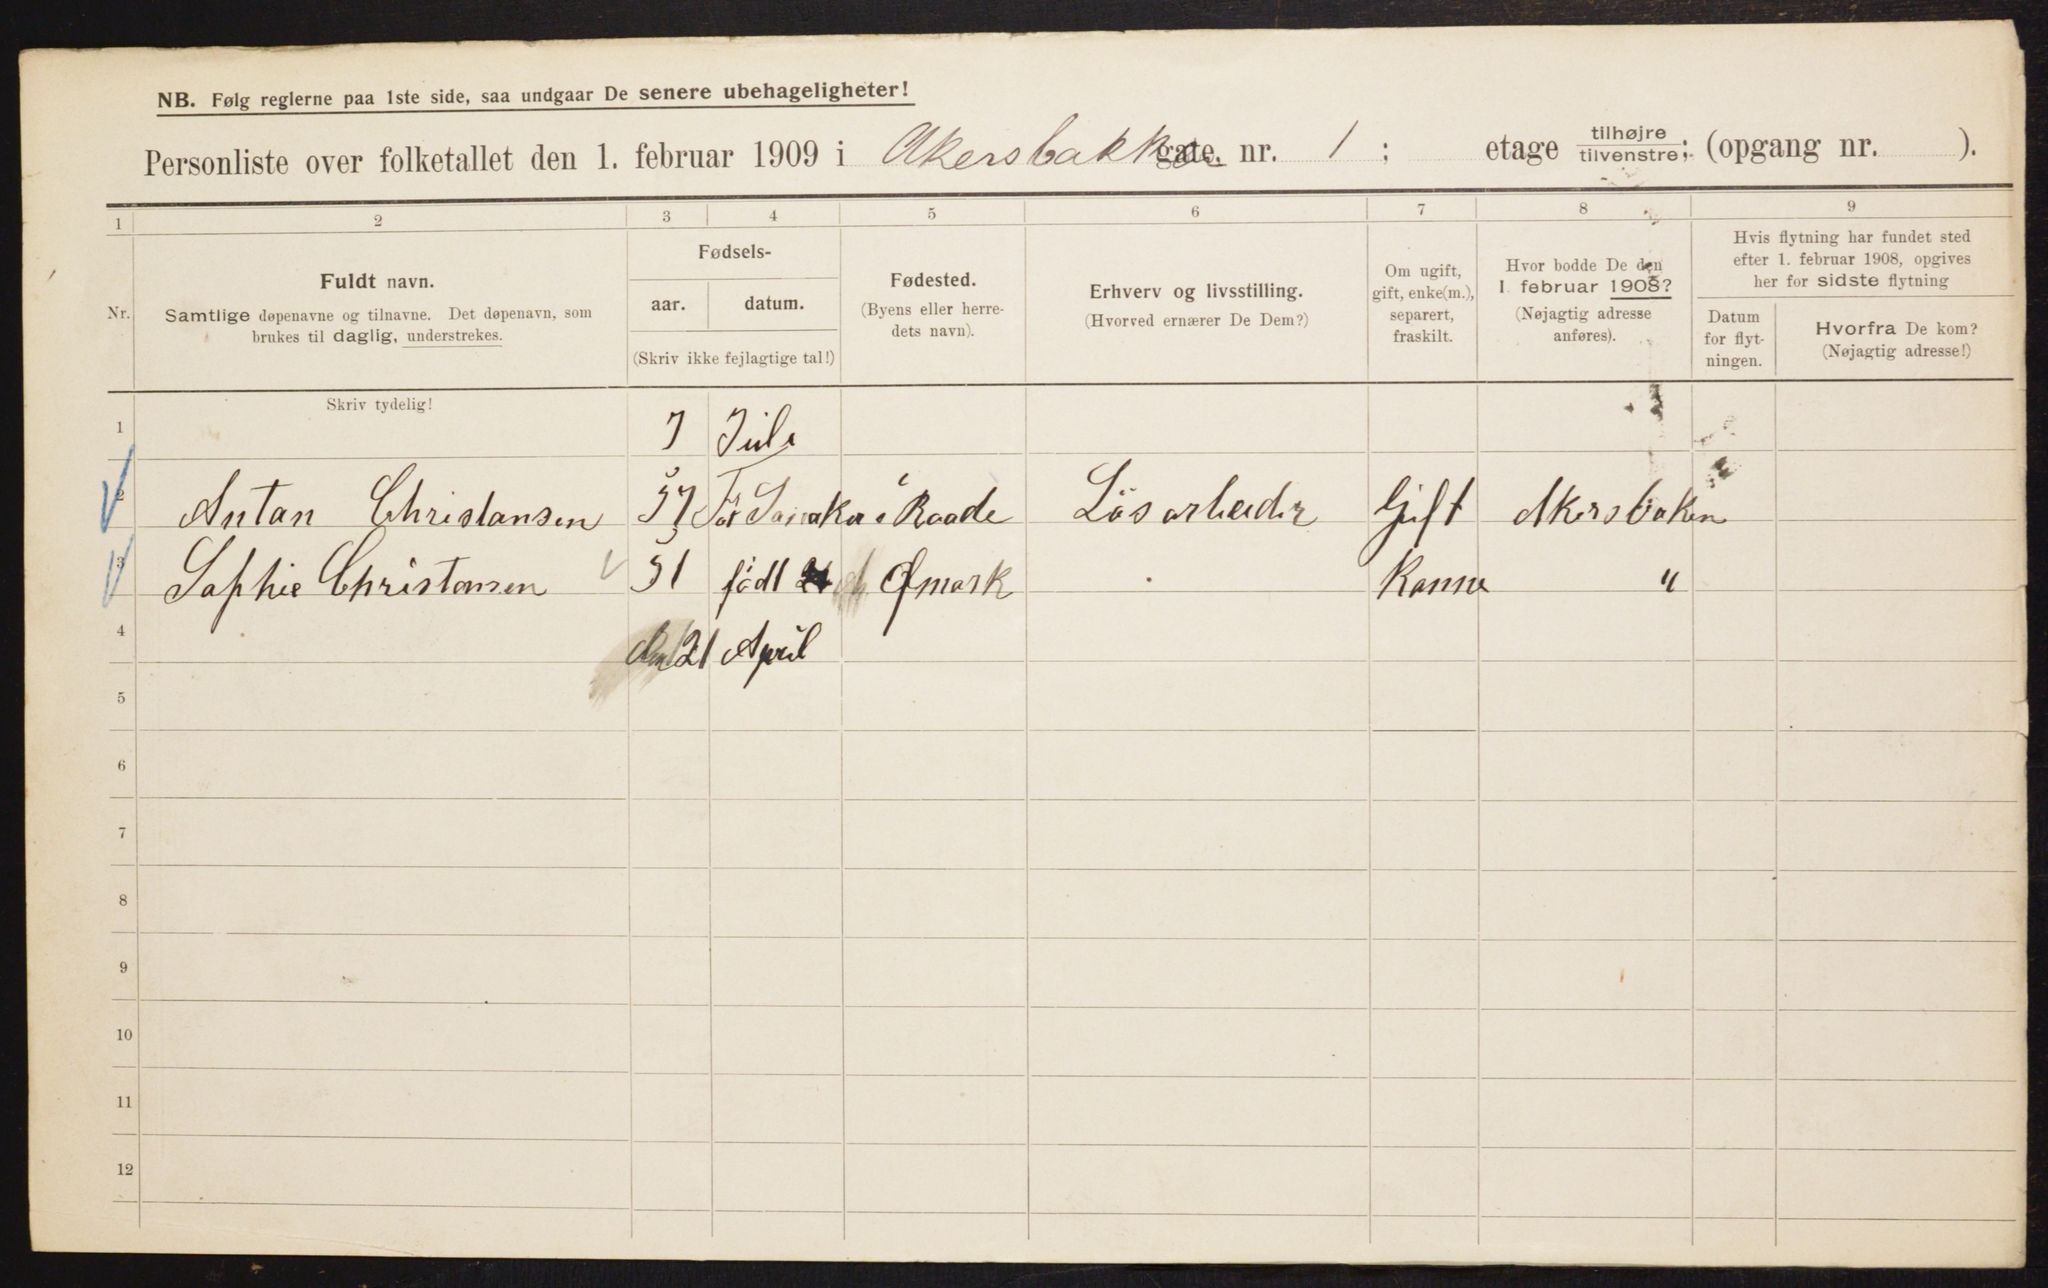 NB. Følg reglerne paa 1ste side, saa undgaar De senere ubehageligheter!
Personliste over folketallet den 1. februar 1909 i Akersbakken gate. nr. 1 ; etage tilhøjre tilvenstre; (opgang nr. ).
1 2 3 4 5 6 7 8 9
Nr.
Fuldt navn.
Samtlige døpenavne og tilnavne. Det døpenavn, som
brukes til daglig, understrekes.
Fødsels-
aar. datum.
(Skriv ikke fejlagtige tal!)
Fødested.
(Byens eller herre-
dets navn).
Erhverv og livsstilling.
(Hvorved ernærer De Dem?)
Om ugift,
gift, enke(m.),
separert,
fraskilt.
Hvor bodde De den
1. februar 1908?
(Nøjagtig adresse
anføres).
Hvis flytning har fundet sted
efter 1. februar 1908, opgives
her for sidste flytning
Datum
for flyt-
ningen.
Hvorfra De kom?
(Nøjagtig adresse!)
Skriv tydelig!
1 7 Juli
2 Antan Christansen 57 i Raade Løsarbeider Gift Akersbaken
3 Sophie Christensen 51 født Ømark Kanne "
4 21 April
5
6
7
8
9
10
11
12